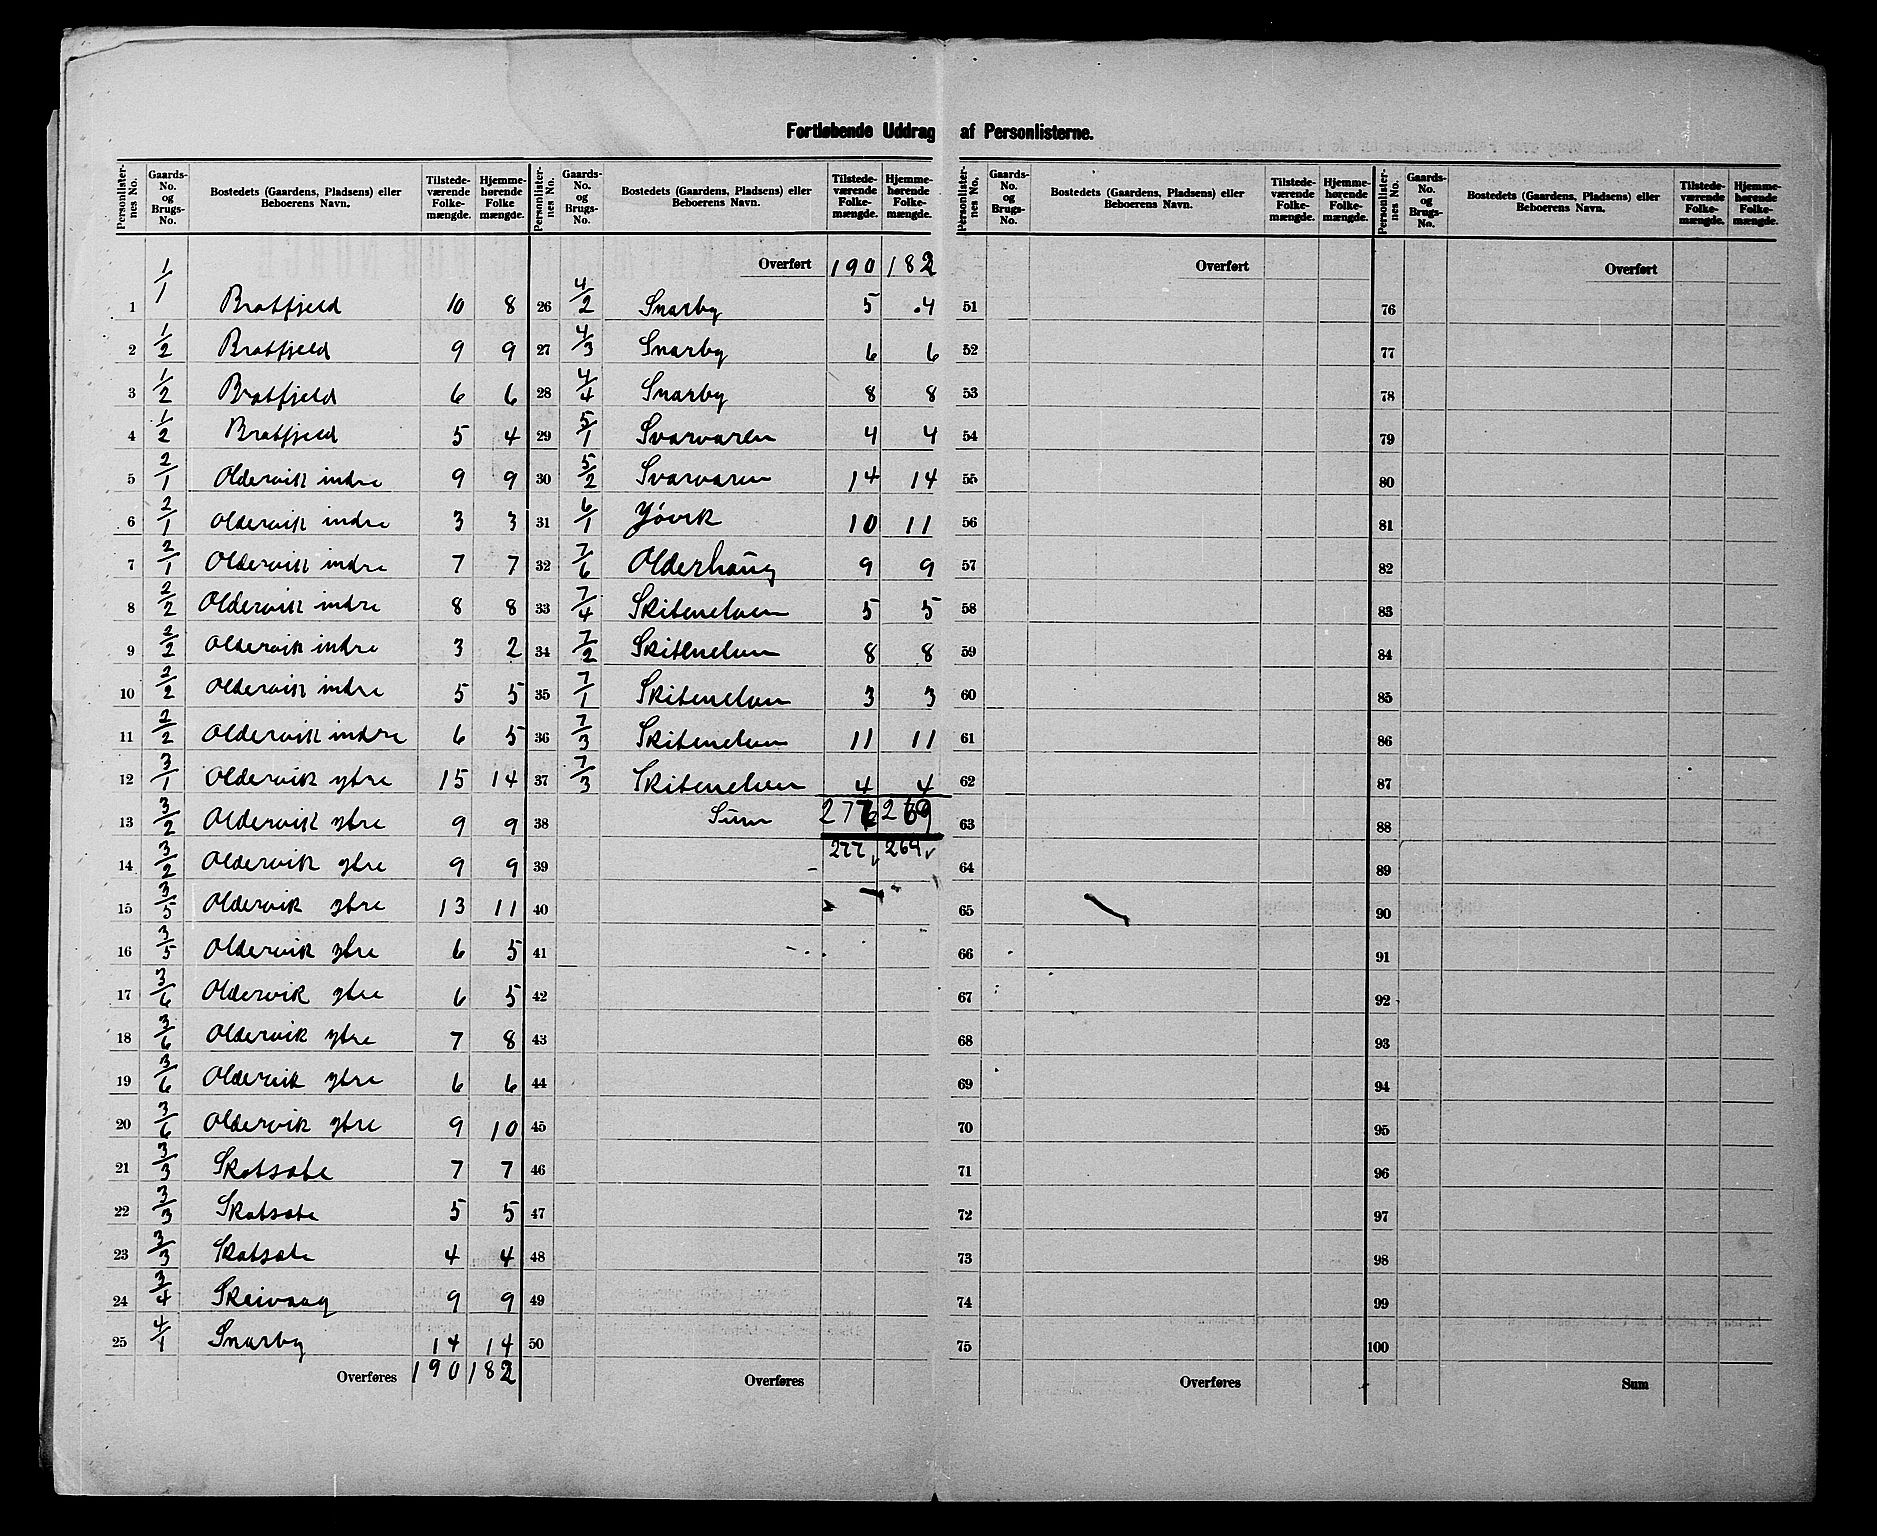 Fortløbende Uddrag af Personlisterne.
Personlister- nes No. | Gaards- No. og Brugs- No. | Bostedets (Gaardens, Pladsens) eller Beboerens Navn. | Tilstede- værende Folke- mængde. | Hjemme- hørende Folke mængde.
1 1/1 Bratfjeld 10 8
2 1/2 Bratfjeld 9 9
3 1/2 Bratfjeld 6 6
4 1/2 Bratfjeld 5 4
5 2/1 Oldervik indre 9 9
6 2/1 Oldervik indre 3 3
7 2/1 Oldervik indre 7 7
8 2/2 Oldervik indre 8 8
9 2/2 Oldervik indre 3 2
10 2/2 Oldervik indre 5 5
11 2/2 Oldervik indre 6 5
12 3/1 Oldervik ytre 15 14
13 3/2 Oldervik ytre 9 9
14 3/2 Oldervik ytre 9 9
15 3/5 Oldervik ytre 13 11
16 3/5 Oldervik ytre 6 5
17 3/6 Oldervik ytre 6 5
18 3/6 Oldervik ytre 7 8
19 3/6 Oldervik ytre 6 6
20 3/6 Oldervik ytre 9 10
21 3/3 Skatsate 7 7
22 3/3 Skatsate 5 5
23 3/3 Skatsate 4 4
24 3/4 Skeivaag 9 9
25 4/1 Snarby 14 14
Overføres 190 182
Personlister- nes No. | Gaards- No. og Brugs- No. | Bostedets (Gaardens, Pladsens) eller Beboerens Navn. | Tilstede- værende Folke- mængde. | Hjemme- hørende Folke- mængde.
Overført 190 182
26 4/2 Snarby 5 4
27 4/3 Snarby 6 6
28 4/4 Snarby 8 8
29 5/1 Svarvaren 4 4
30 5/2 Svarvaren 14 14
31 6/1 Jøvik 10 11
32 7/6 Olderhaug 9 9
33 7/4 Skitenelven 5 5
34 7/2 Skitenelven 8 8
35 7/1 Skitenelven 3 3
36 7/3 Skitenelven 11 11
37 7/3 Skitenelven 4 4
38 Sum 277 269
39 277 269
40
41
42
43
44
45
46
47
48
49
50
Overføres
Personlister- nes No. | Gaards- No. og Brugs- No. | Bostedets (Gaardens, Pladsens) eller Beboerens Navn. | Tilstede- værende Folke- mængde. | Hjemme- hørende Folke- mængde.
Overført
51
52
53
54
55
56
57
58
59
60
61
62
63
64
65
66
67
68
69
70
71
72
73
74
75
Overføres
Personlister- nes No. | Gaards- No. og Brugs- No. | Bostedets (Gaardens, Pladsens) eller Beboerens Navn. | Tilstede- værende Folke- mængde. | Hjemme- hørende Folke- mængde.
Overført
76
77
78
79
80
81
82
83
84
85
86
87
88
89
90
91
92
93
94
95
96
97
98
99
100
Sum